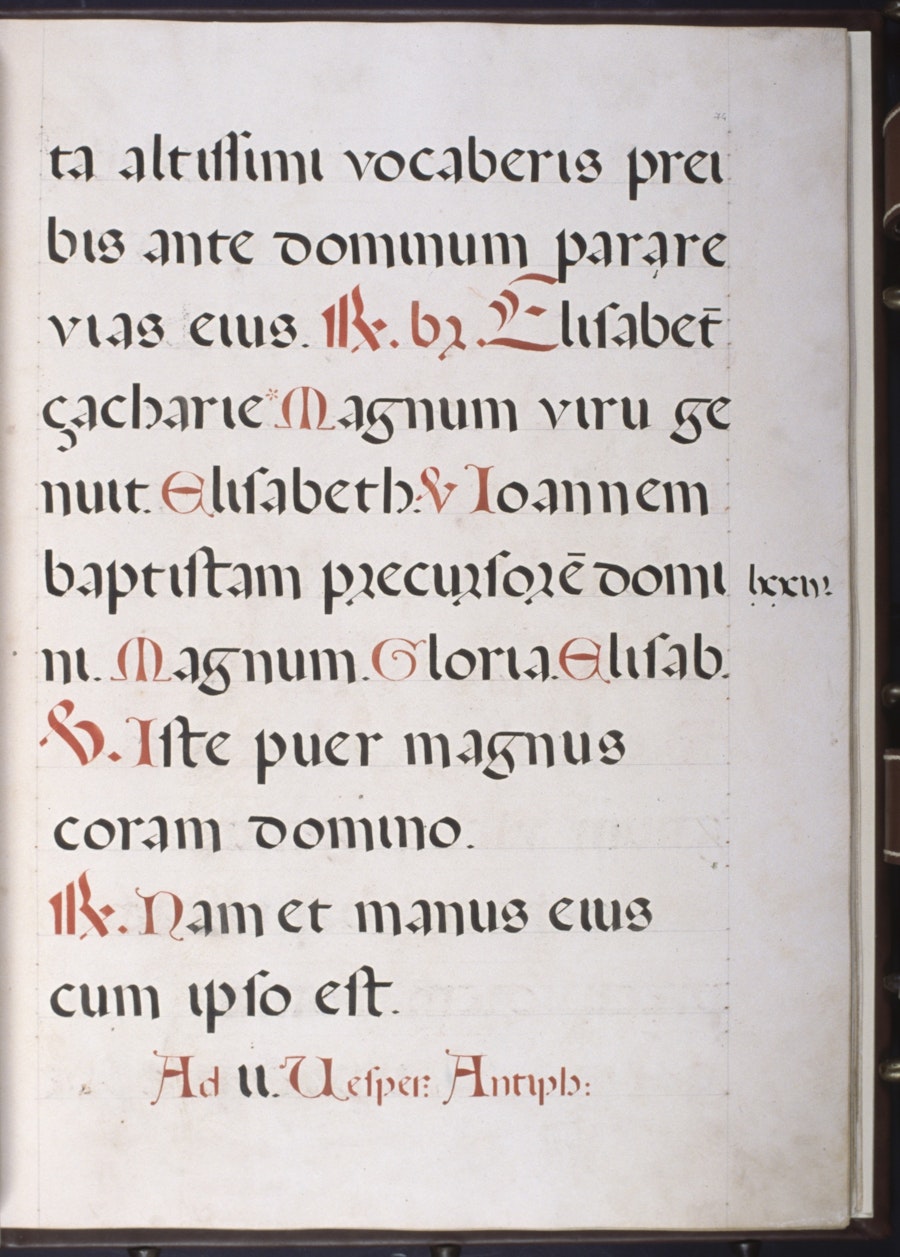 74
ta altiſſimi vocaberis prei
bis ante dominum parare
vias eius. ℟. br. Eliſabet̄
çacharie* Magnum viru ge
nuit. Eliſabeth. & Ioannem
baptiſtam precurſorē domi
lxxiv.
ni. Magnum. Gloria. Eliſab.
℣. Iſte puer magnus
coram domino.
℟. Nam et manus eius
cum ipſo eſt.
Ad II. Veſper: Antiph: